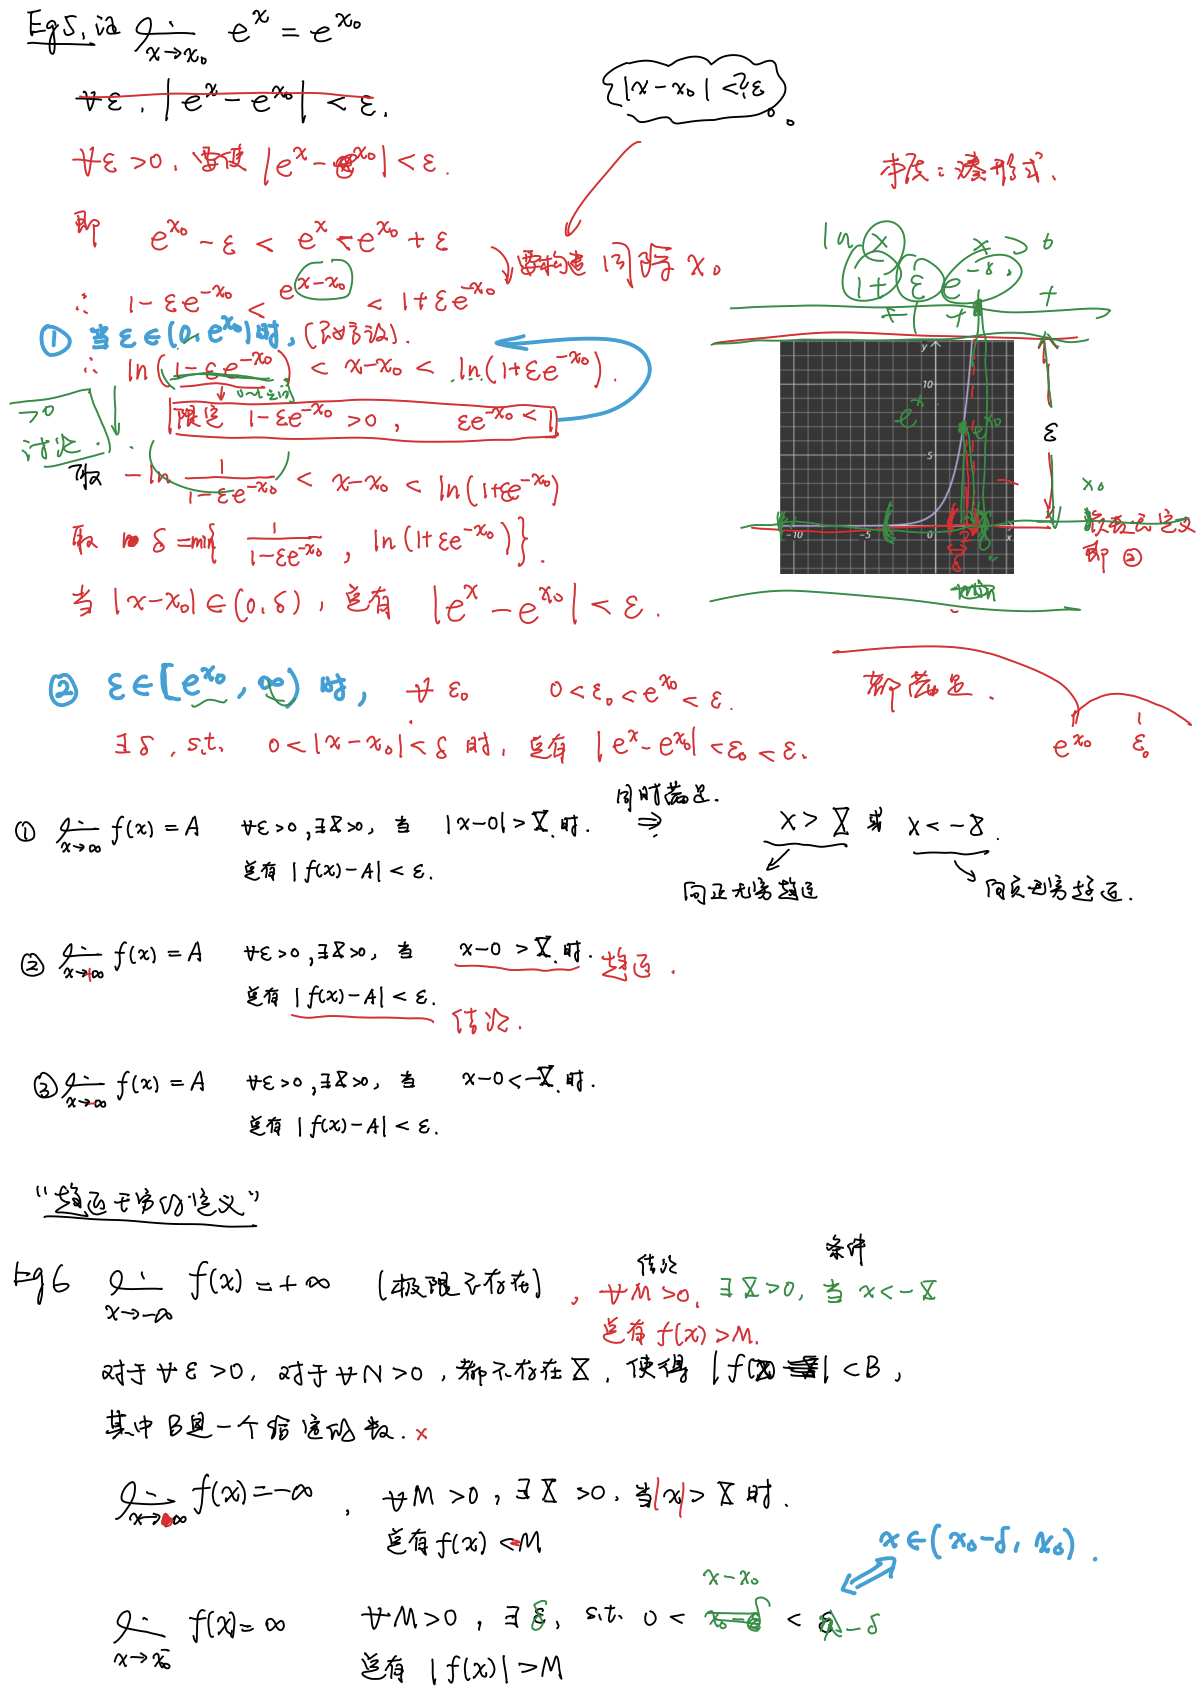 Eg5. 证 lim x→x₀ e^x = e^x₀
∀ε, |e^x - e^x₀| < ε.
|x-x₀| <? ε
∀ε>0, 要使 |e^x - e^x₀| < ε.
本质:凑形式.
即 e^x₀ - ε < e^x < e^x₀ + ε
要构造 同除 x₀
ln x x > 0
1+ε e^-x.
+ + +
∴ 1-εe^-x₀ < e^x-x₀ < 1+εe^-x₀
① 当 ε∈(0, e^x₀)时,
∴ ln(1-εe^-x₀) < x-x₀ < ln(1+εe^-x₀).
>0
讨论.
限定 1-εe^-x₀ >0, εe^-x₀ < 1
取 -ln 1/(1-εe^-x₀) < x-x₀ < ln(1+εe^-x₀)
取 δ=min{ 1/(1-εe^-x₀), ln(1+εe^-x₀)}.
当 |x-x₀|∈(0,δ), 总有 |e^x - e^x₀| < ε.
y
10
5
e^x
e^x₀
-10 -5 0 x
δ
ε
x₀
即②
② ε∈[e^x₀, ∞) 时, ∀ ε₀ 0<ε₀<e^x₀<ε.
都满足.
e^x₀ ε₀
∃δ, s.t. 0<|x-x₀|<δ 时, 总有 |e^x-e^x₀|<ε₀<ε.
① lim x→∞ f(x)=A ∀ε>0,∃X>0, 当 |x-0|>X 时. 同时满足. ⇒ x>X 或 x<-X.
总有 |f(x)-A|<ε.
向正无穷趋近 向负无穷趋近.
② lim x→+∞ f(x)=A ∀ε>0,∃X>0, 当 x-0>X 时. 趋近.
总有 |f(x)-A|<ε.
结论.
③ lim x→-∞ f(x)=A ∀ε>0,∃X>0, 当 x-0<-X 时.
总有 |f(x)-A|<ε.
“趋近无穷的定义”
结论 条件
Eg6 lim x→-∞ f(x)=+∞ (极限不存在), ∀M>0, ∃X>0, 当 x<-X
总有 f(x)>M.
对于∀ε>0, 对于∀N>0, 都不存在X, 使得 |f(x)| <B,
其中B是一个给定的数. ×
lim x→∞ f(x)=-∞, ∀M>0, ∃X>0, 当|x|>X 时.
总有 f(x)<-M
x∈(x₀-δ, x₀).
x-x₀
lim x→x₀⁻ f(x)=∞ ∀M>0, ∃δ, s.t. 0< < -δ
总有 |f(x)|>M